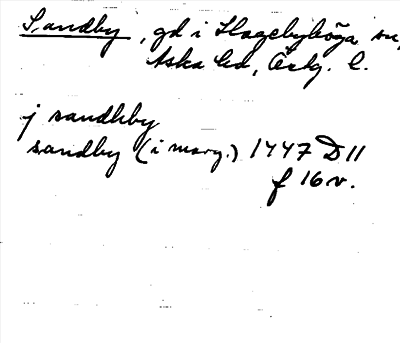 Sandby, gd i Hagebyhöga sn,
Aska hd, Östg. l.
j sandhby
sandby (i marg.) 1447 D11
f 16 v.